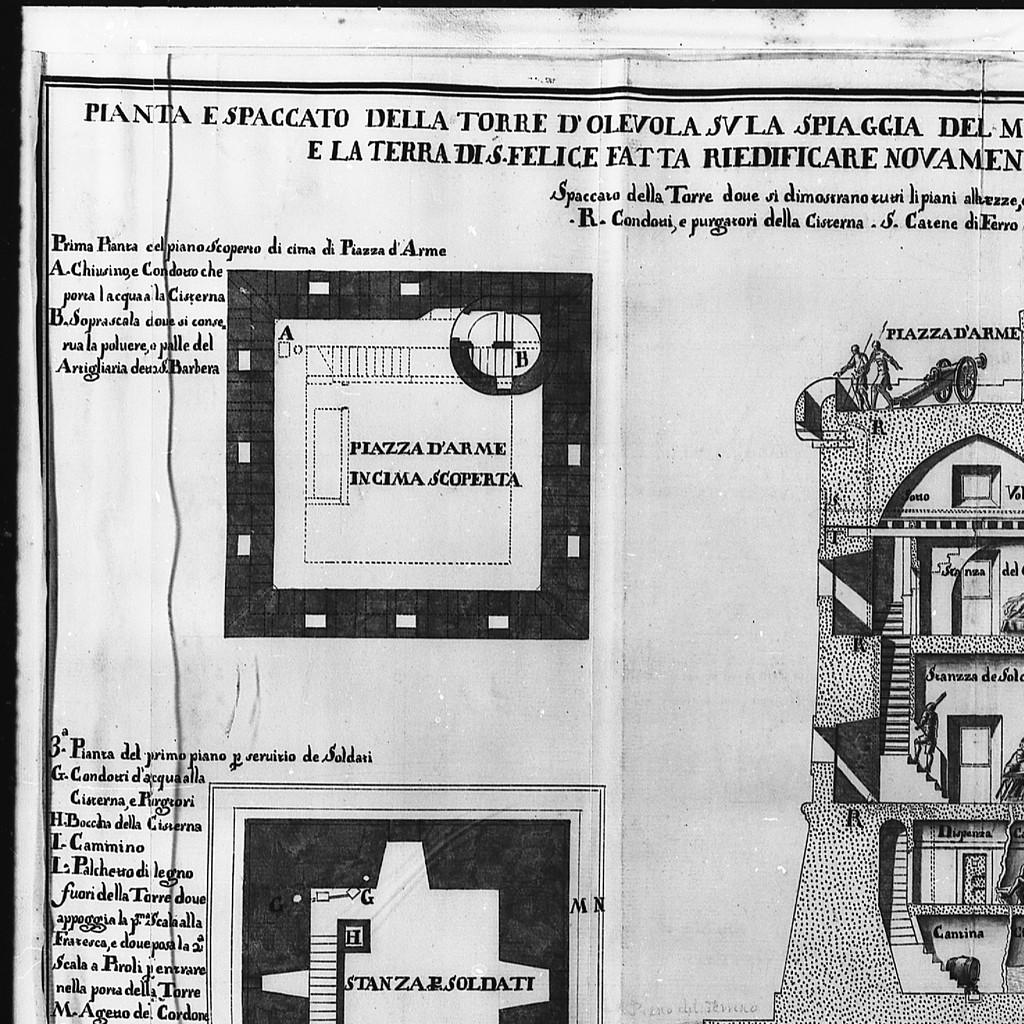 PIANTA E SPACCATO DELLA TORRE D'OLEVOLA SVLA SPIAGGIA DEL M
E LA TERRA DI S. FELICE FATTA RIEDIFICARE NOVAMEN
Spaccato della Torre doue si dimostrano tutti li piani altezze,
.R. Condotti, e purgatori della Cisterna . S. Catene di Ferro
Prima Pianta del piano Scoperto di cima di Piazza d'Arme
A. Condotto che
porta l acqua a la Cisterna
B. Soprascala doue si conse,
rua la poluere, e palle del
Artigliaria detta S. Barbera
A
B
PIAZZA D'ARME
IN CIMA SCOPERTA
PIAZZA D'ARME
R
Sotto Vol
Stanza del C
R
Stanzza de Sold
R
Dispenza
Cantina
3.ª Pianta del primo piano p servitio de Soldati
G. Condotti d'acqua alla
Cisterna, e Purgatori
H. Boccha della Cisterna
I. Cammino
L. Palchetto di legno
fuori della Torre doue
appoggia la pª Scala alla
Fratesca, e doue posa la 2ª
Scala a Piroli p entrare
nella porta della Torre
M. Agetto del Cordone
G
G
M N
H
STANZA P. SOLDATI
Piano del Terreno